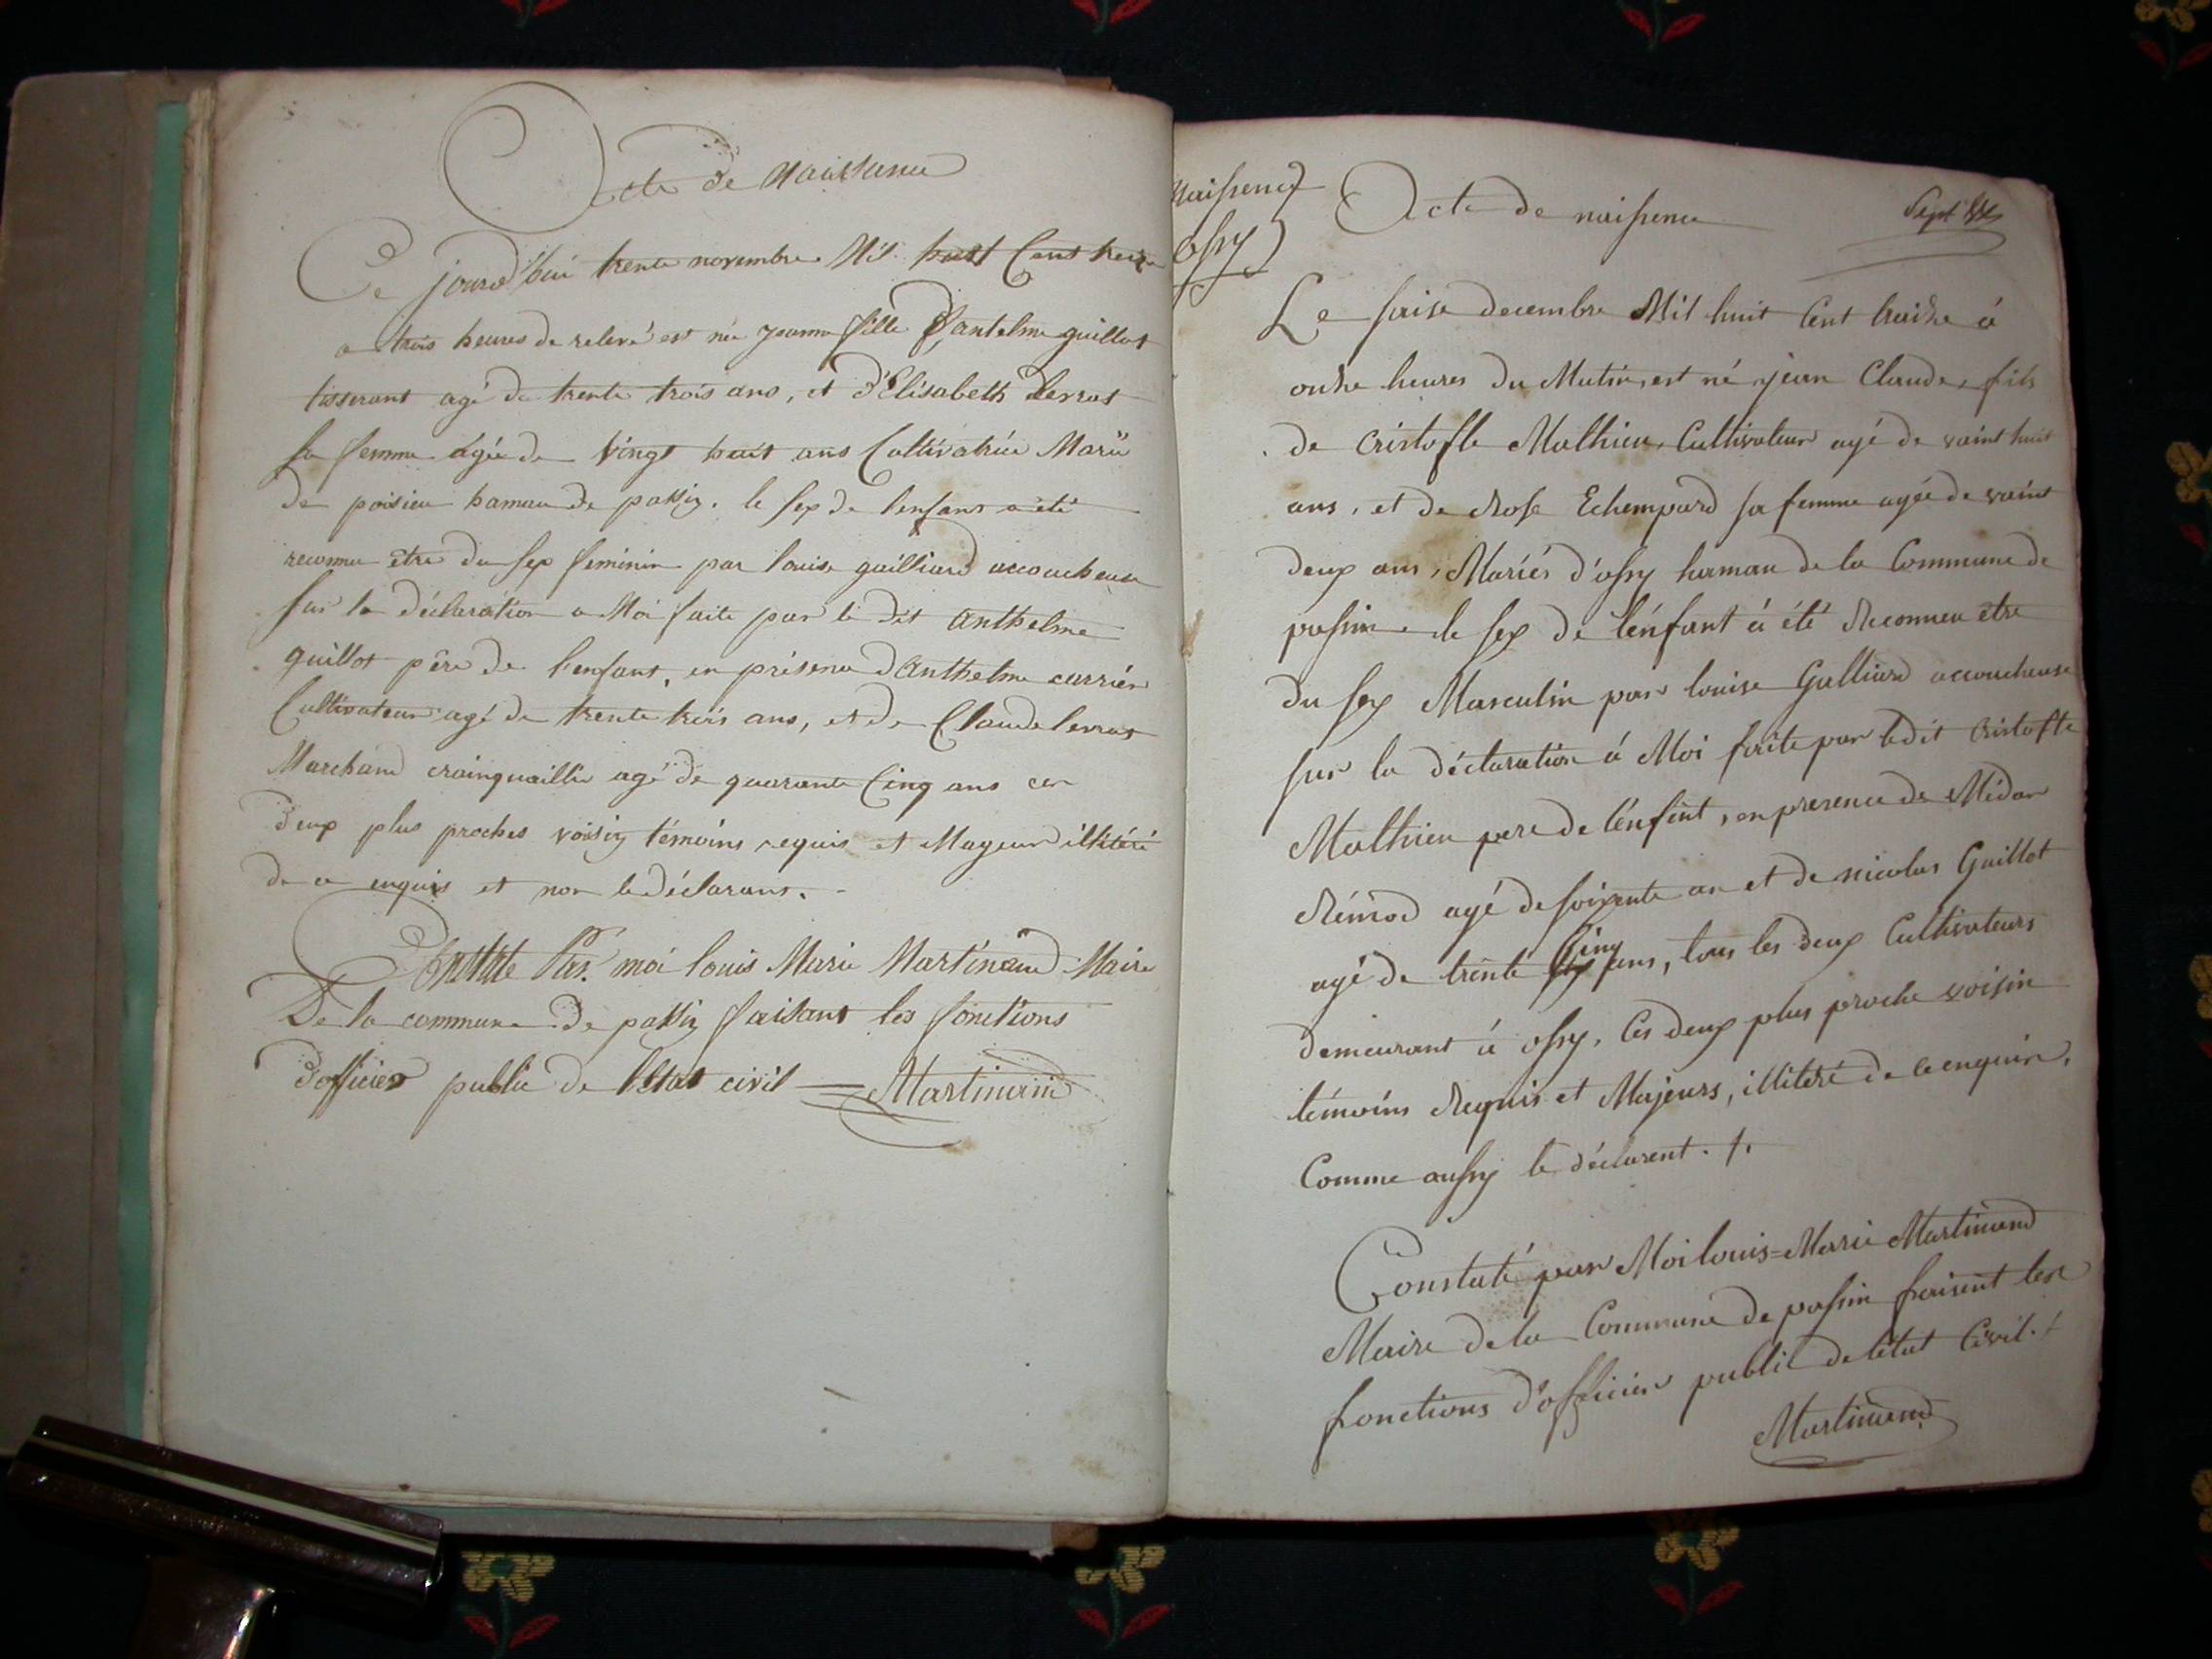 Acte de Naissance
Ce jourd'hui trente novembre Mil huit Cent treize
a trois heures de relevé est née jeanne fille d'antelme guillot
tisserant agé de trente trois ans, et d'Elisabeth Serrat
sa femme agée de vingt huit ans Cultivatrice Mariè
de poisieu hamau de passin. le sex de l'enfant a été
reconnu être du sex feminin par louise gailliard accoucheuse
sur la déclaration a Moi faite par le dit anthelme
guillot père de l'enfant, en présence d'anthelme carrier
Cultivateur agé de trente trois ans, et de Claude Serrat
Marchand crainquaillie agé de quarante Cinq ans ces
deux plus proches voisin témoins requis et Mageur illitéré
de ce enquis et non le déclarant.
Constate Par moi louis Marie Martinand Maire
De la commune de passin faisant les fonctions
d'officier public de l'état civil = Martinand
Naissence
ossy
Acte de naissence
Sept
Le saise decembre Mil huit Cent traidze à
ondze heures du Matin est né jean Claude fils
de Cristofle Mathieu, Cultivateur agé de vaint huit
ans, et de Rose Echempard sa femme agée de vaint
deux ans, Mariés d'ossy hamau de la Commune de
passin le sex de l'énfant à été Reconneu être
du sex Masculin par louise Galliard accoucheuse
sur la déclaration à Moi faite par ledit Cristofle
Mathieu pere de l'énfent, en presence de Médar
Rémod agé de soixente an et de nicolas Guillot
agé de trente Cinq ans, tous les deux Cultivateurs
demeurant à ossy, Ces deux plus proche voisin
témoins Requis et Majeurs, illiteré de ce enquis.
Comme aussy le déclarent.
Constaté par Moi louis=Marie Martinand
Maire de la Commune de passin faisent les
fonctions d'officier public de l'état Civil.
Martinand